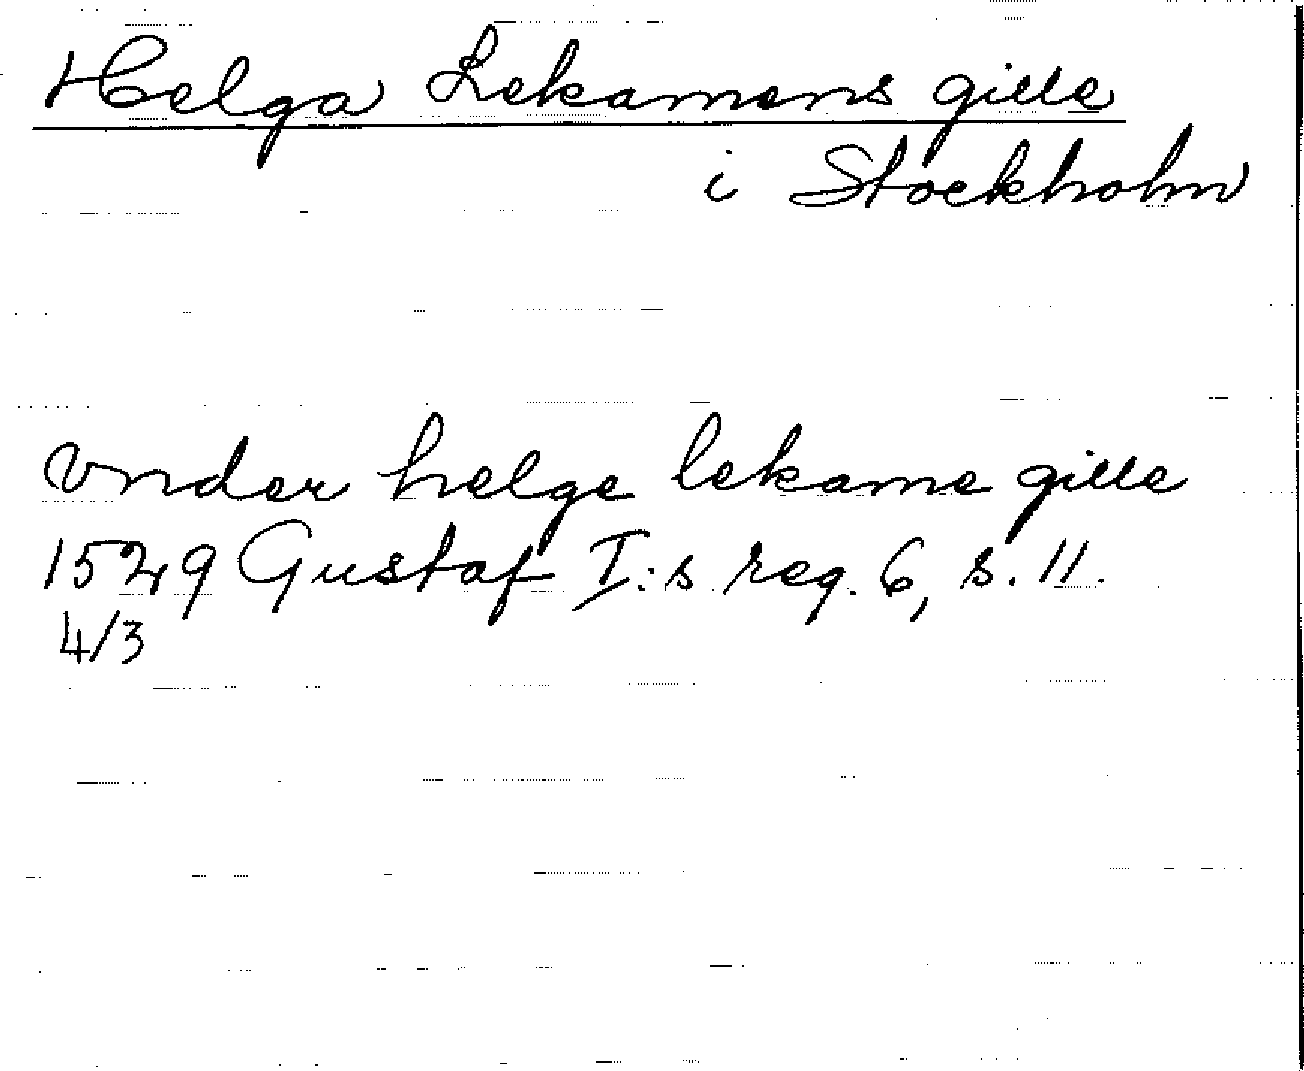 Helga Lekamens gille
i Stockholm
vnder helge lekame gille
1529 Gustaf I:s reg. 6, s. 11.
4/3